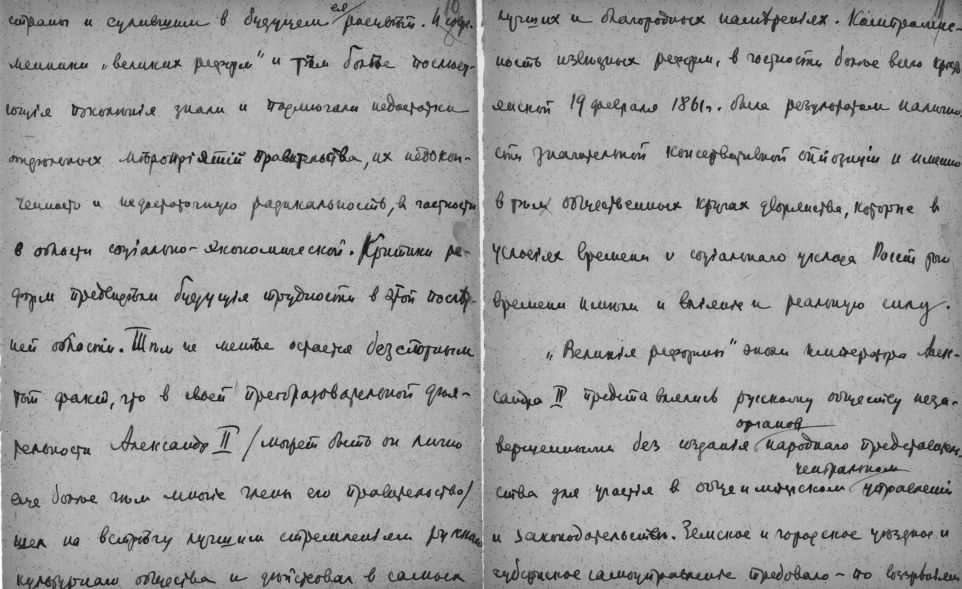 страны и сулившим в будущем ея расцвѣт. И совре-
менники „великих реформ" и тѣм болѣе послѣду-
ющія поколѣнія знали и подмѣчали недостатки
отдѣльных мѣропріятій правительства, их недокон-
ченность и недостаточную радикальность, в частности
в области соціально-экономической. Критики ре-
форм предвидѣли будущія трудности в этой послѣд-
ней области. Тѣм не менѣе остается безспорным
тот факт, что в своей преобразовательной дѣя-
тельности Александр II /может быть он лично
еще болѣе чѣм многіе члены его правительства/
шел на встрѣчу лучшим стремленіям русскаго
культурнаго общества и дѣйствовал в самых
лучших и благородных намѣреніях. Компромис-
ность изводных реформ, в частности болѣе всего кресть-
янской 19 февраля 1861г. была результатом налично-
сти значительной консервативной оппозиціи и именно
в тѣх общественных кругах дворянства, которые в
условіях времени и соціальнаго уклада Россіи того
времени имѣли и вліяніе и реальную силу.
„Великія реформы" эпохи императора Алек-
сандра II представлялись русскому обществу неза-
вершенными без созданія органов народнаго представитель-
ства для участія в общеимперском центральном управленіи
и законодательствѣ. Земское и городское уѣздное и
губернское самоуправленіе требовало - по воззрѣніям